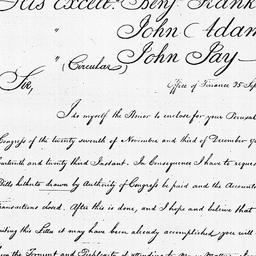 His Excell: Benj Frank
" John Adam
" John Jay
(Circular)
Sir,
Office of Finance 25 Sep
I do myself the Honor to enclose for your Perusal
Congress of the twenty seventh of November and third of December
fourteenth and twenty third Instant. In Consequence I have to reques
Bills hitherto drawn by Authority of Congress be paid and the Accounts
ransactions closed. After this is done, and I hope and believe that
writing this Letter it may have been already accomplished you will
the Torment and Perplexity of attending to Money Matters